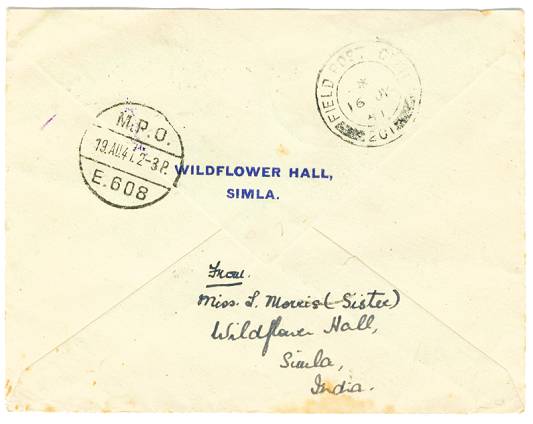 FIELD POST
16 JY
201
M.P.O.
19.AU.41.2-3P.
E.608
WILDFLOWER HALL,
SIMLA.
From.
Miss. I. Morris (Sister)
Wildflower Hall,
Simla,
India.